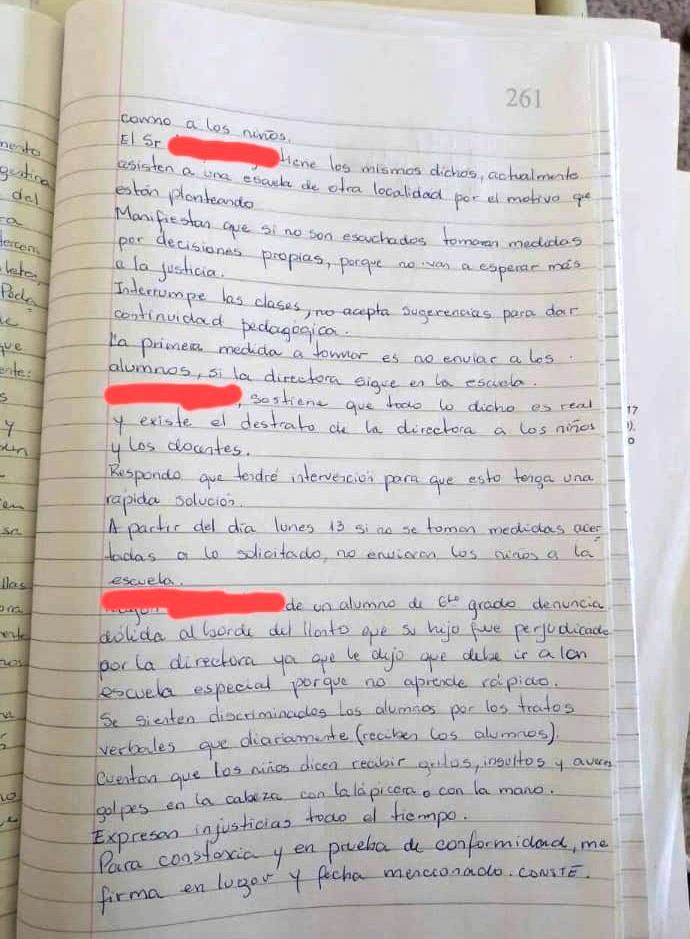 261
como a los niños.
El Sr tiene los mismos dichos, actualmente
asisten a una escuela de otra localidad por el motivo que
están planteando
Manifiestan que si no son escuchados tomaran medidas
por decisiones propias, porque no van a esperar más
a la justicia.
Interrumpe las clases, no acepta sugerencias para dar
continuidad pedagógica.
La primera medida a tomar es no enviar a los
alumnos, si la directora sigue en la escuela.
, sostiene que todo lo dicho es real
y existe el destrato de la directora a los niños
y los docentes.
Respondo que tendré intervención para que esto tenga una
rápida solución.
A partir del día lunes 13 si no se toman medidas acer
tadas a lo solicitado, no enviaran los niños a la
escuela.
de un alumno de 6to grado denuncia
dólida al borde del llanto que su hijo fue perjudicado
por la directora ya que le dijo que debe ir a lan
escuela especial porque no aprende rápido.
Se sienten discriminados los alumnos por los tratos
verbales que diariamente (reciben los alumnos).
Cuentan que los niños dicen recibir gritos, insultos y
golpes en la cabeza con la lapicera o con la mano.
Expresan injusticias todo el tiempo.
Para constancia y en prueba de conformidad, me
firma en lugar y fecha mencionado. CONSTE.
mento
del
que
y
17